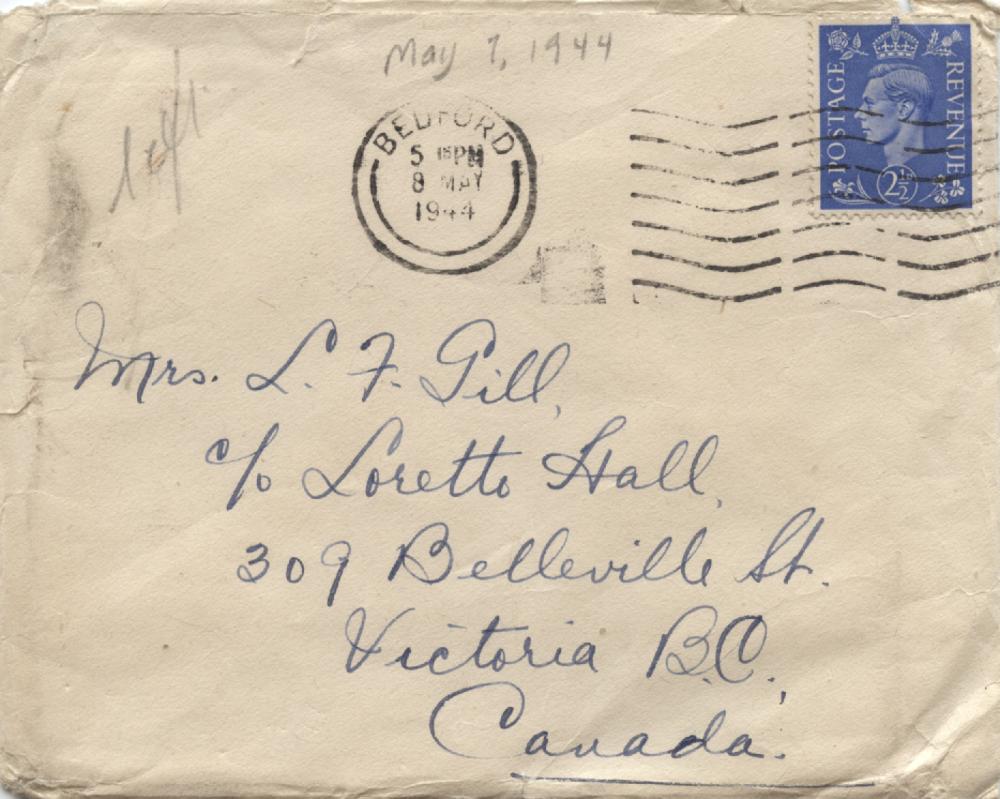 May 7, 1944
BEDFORD
5 15 PM
8 MAY
1944
POSTAGE
REVENUE
2½
Mrs. L. F. Gill,
c/o Loretto Hall,
309 Belleville St.
Victoria B.C.,
Canada.